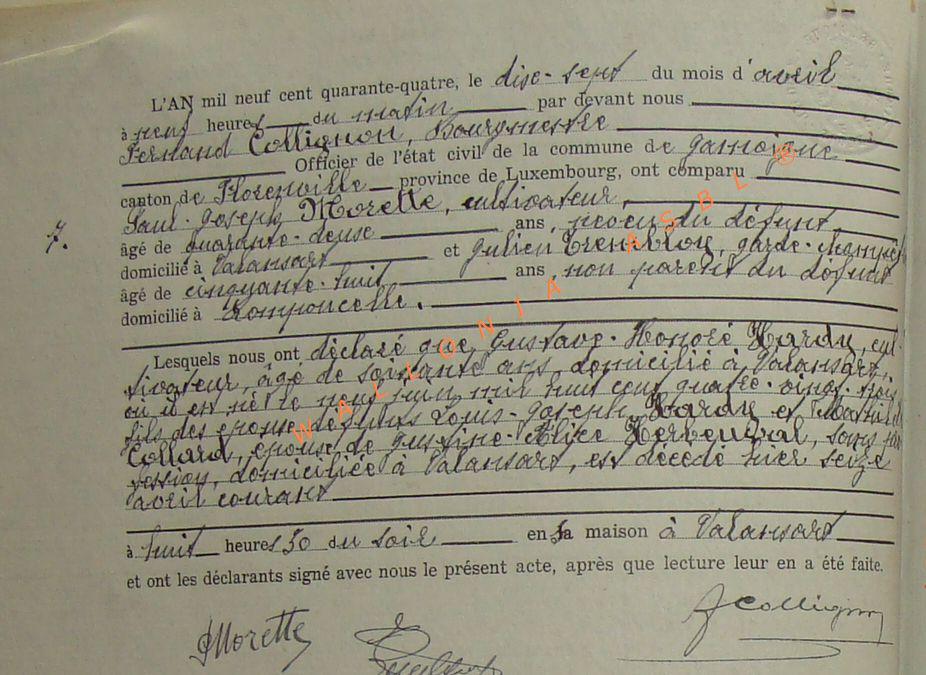 L'AN mil neuf cent quarante-quatre, le dix-sept du mois d'avril
à neuf heures du matin par devant nous
Fernand Collignon, Bourgmestre
Officier de l'état civil de la commune de Jamoigne
canton de Florenville province de Luxembourg, ont comparu
Paul-Joseph Morette, cultivateur,
âgé de quarante-deux ans, neveu du défunt
domicilié à Valansart et Julien garde-champêtre
âgé de cinquante-huit ans, non parent du défunt
domicilié à Romponcelle.
7.
Lesquels nous ont déclaré que Gustave-Honoré Hardy, cul-
tivateur, âgé de soixante ans, domicilié à Valansart,
où il est né le neuf juin mil huit cent quatre-vingt-trois
fils des époux défunts Louis-Joseph Hardy et
Collard, époux de Justine-Alice sans pro-
fession, domiciliée à Valansart, est décédé hier seize
avril courant
à huit heures 50 du soir en sa maison à Valansart
et ont les déclarants signé avec nous le présent acte, après que lecture leur en a été faite.
PMorette
FCollignon
WALLONIA ASBL ®